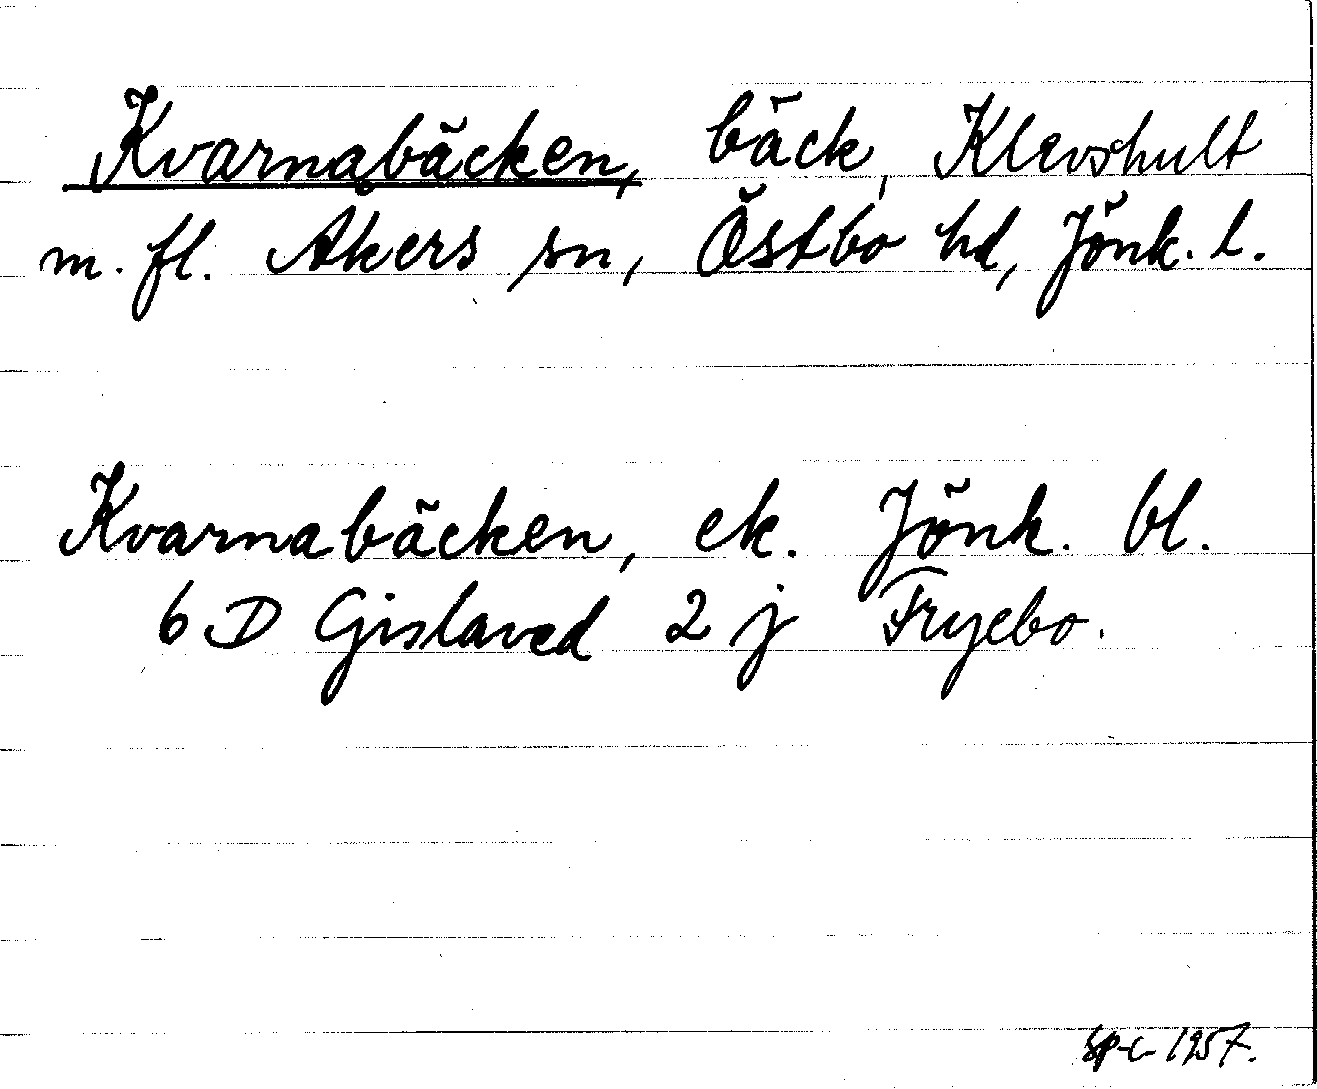 Kvarnabäcken, bäck, Klevshult
m. fl. Åkers sn, Östbo hd, Jönk. l.
Kvarnabäcken, ek. Jönk. bl.
6 D Gislaved 2 j Fryebo.
1957.